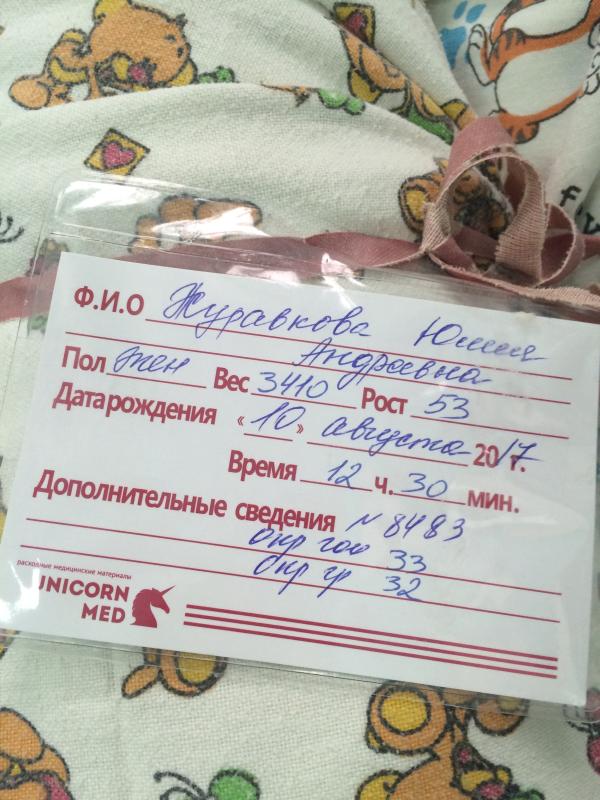 Ф.И.О Журавкова Юлия
Андреевна
Пол жен Вес 3410 Рост 53
Дата рождения «10» августа 2017 г.
Время 12 ч. 30 мин.
Дополнительные сведения N 8483
окр гол 33
окр гр 32
расходные медицинские материалы
UNICORN
MED